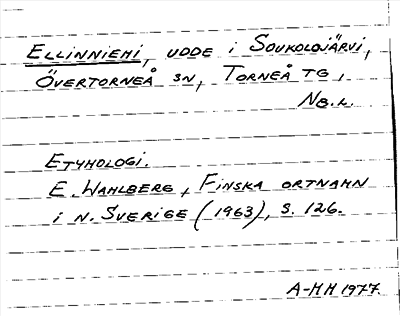 ELLINNIEMI, UDDE i SOUKOLOJÄRVI,
ÖVERTORNEÅ SN, TORNEÅ TG,
NB.L.
ETYMOLOGI.
E. WAHLBERG, FINSKA ORTNAMN
i N. SVERIGE (1963), S. 126.
A-MH 1977